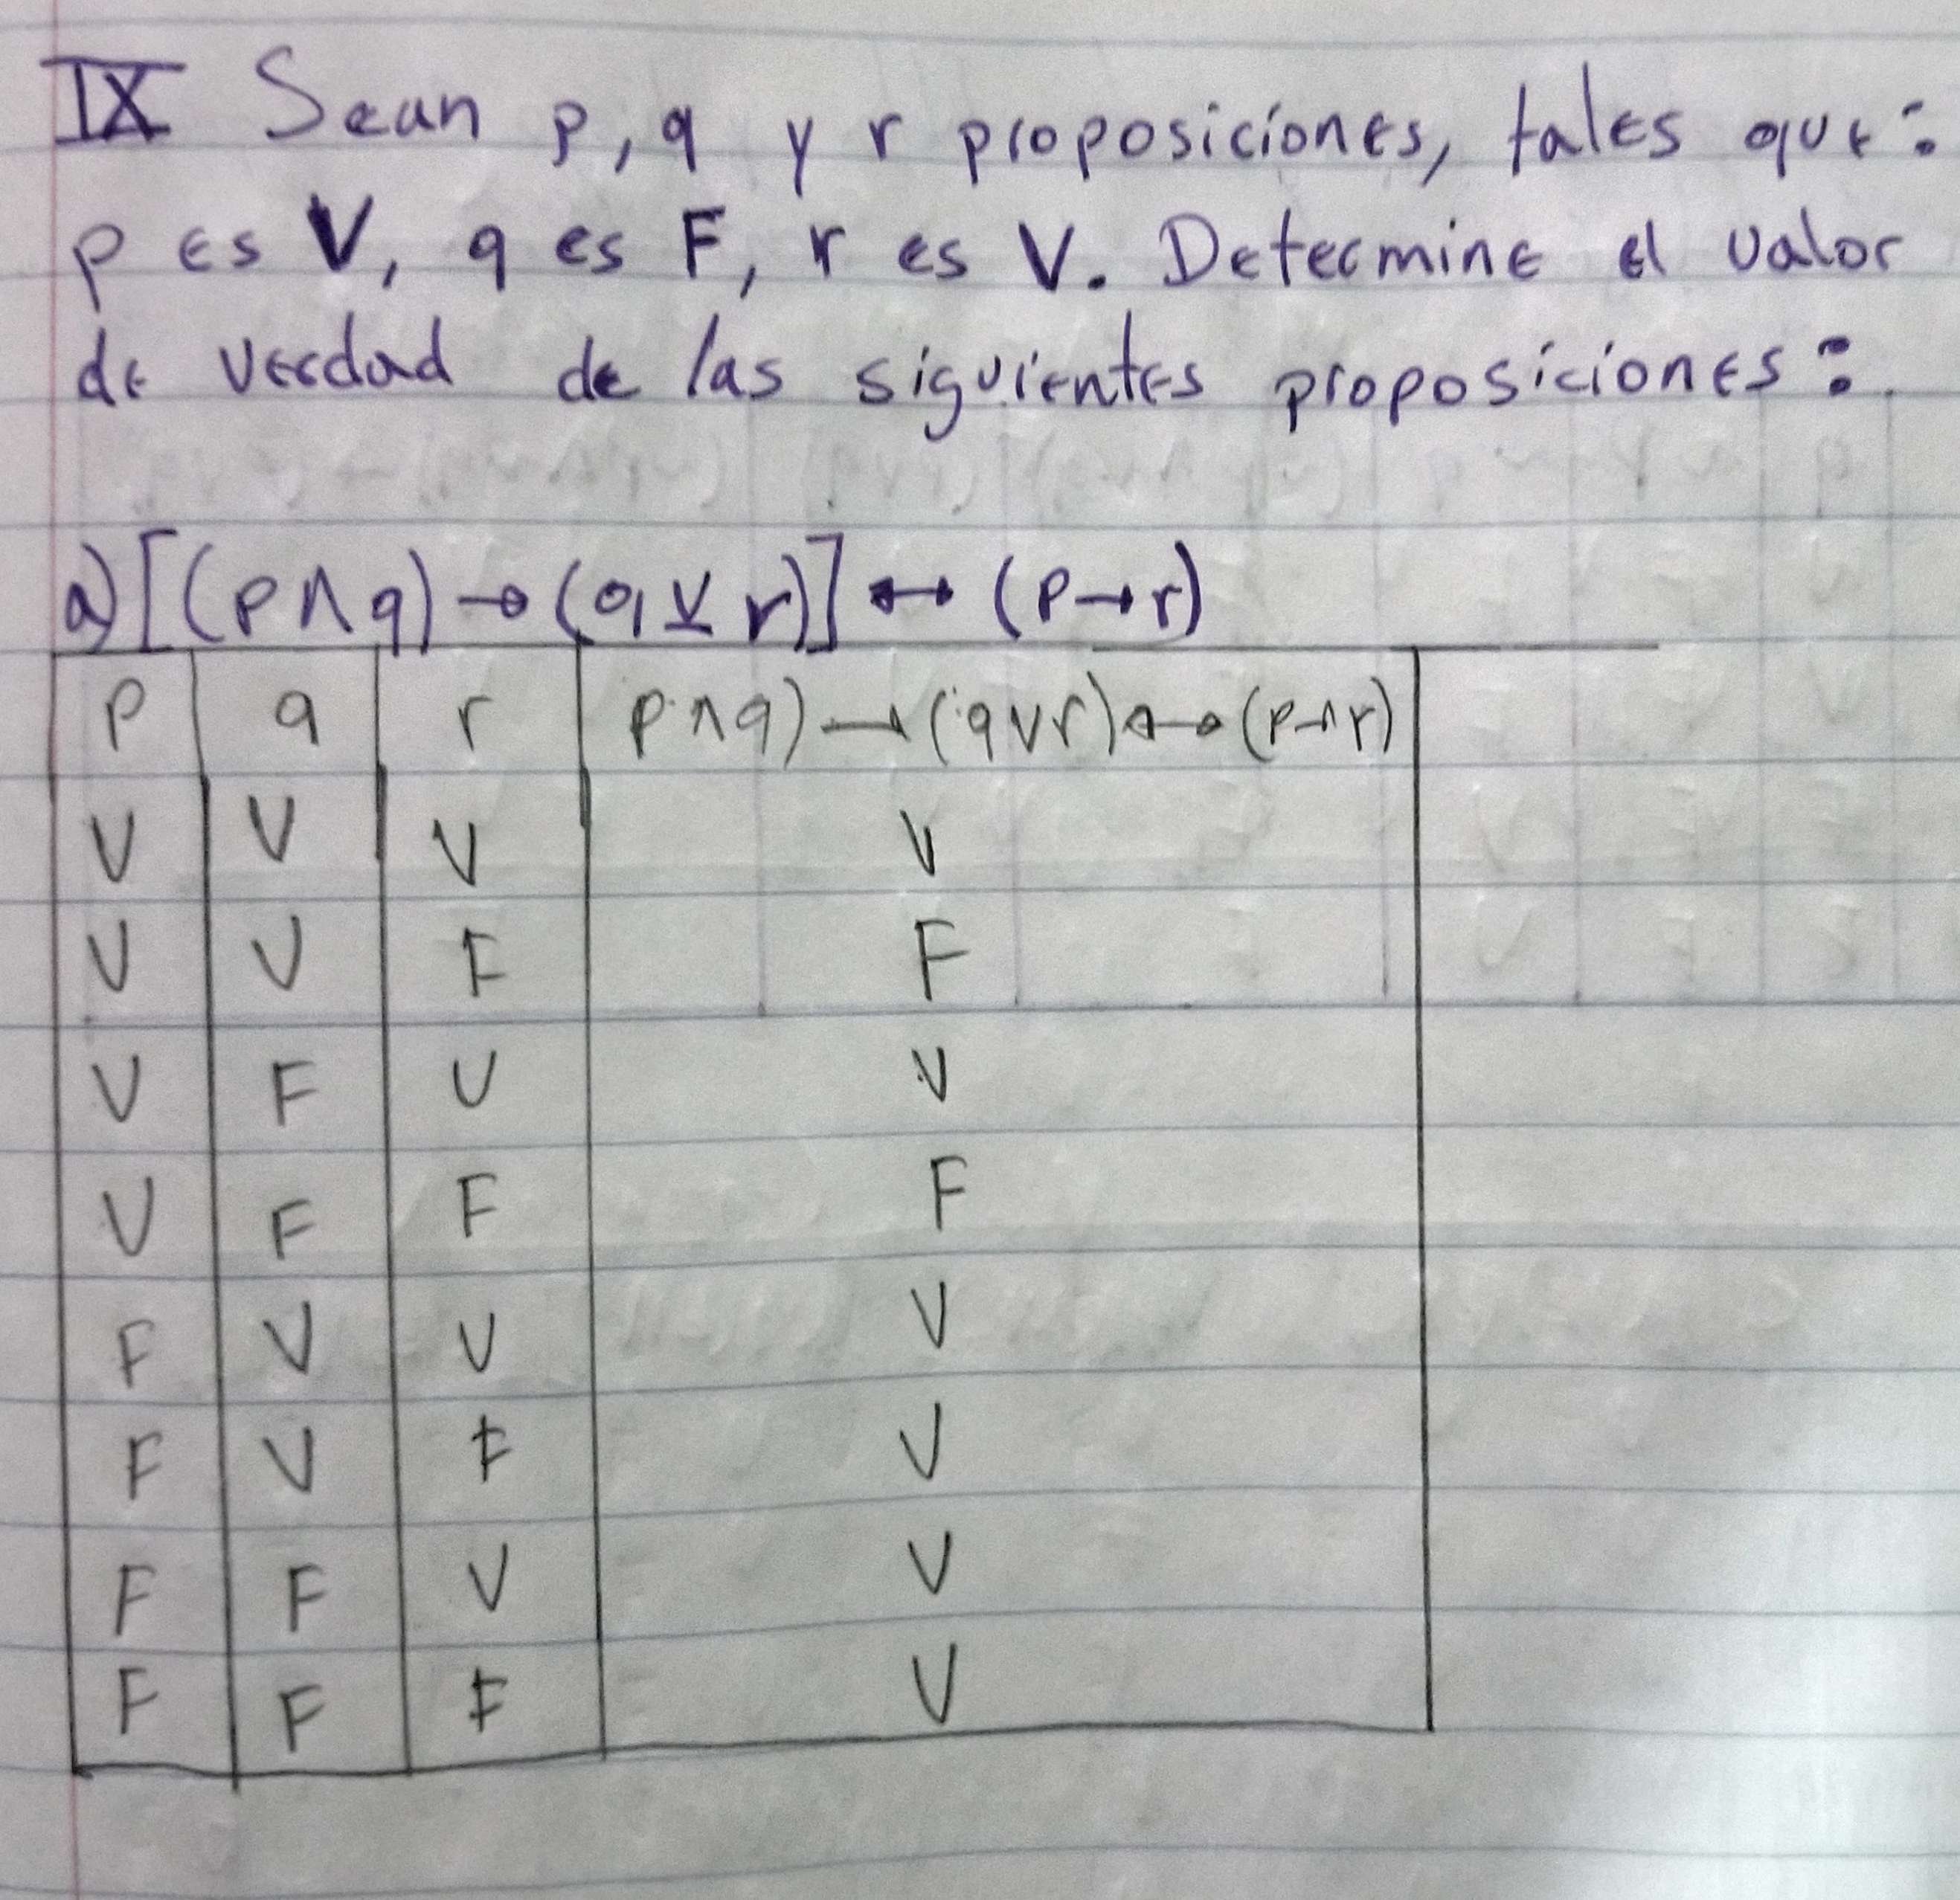 IX Sean p, q y r proposiciones, tales que:
p es V, q es F, r es V. Determine el valor
de verdad de las siguientes proposiciones:
a) [(p ∧ q) → (q ⊻ r)] ↔ (p → r)
p q r p ∧ q) → (q ∨ r) ↔ (p → r)
V V V V
V V F F
V F V V
V F F F
F V V V
F V F V
F F V V
F F F V